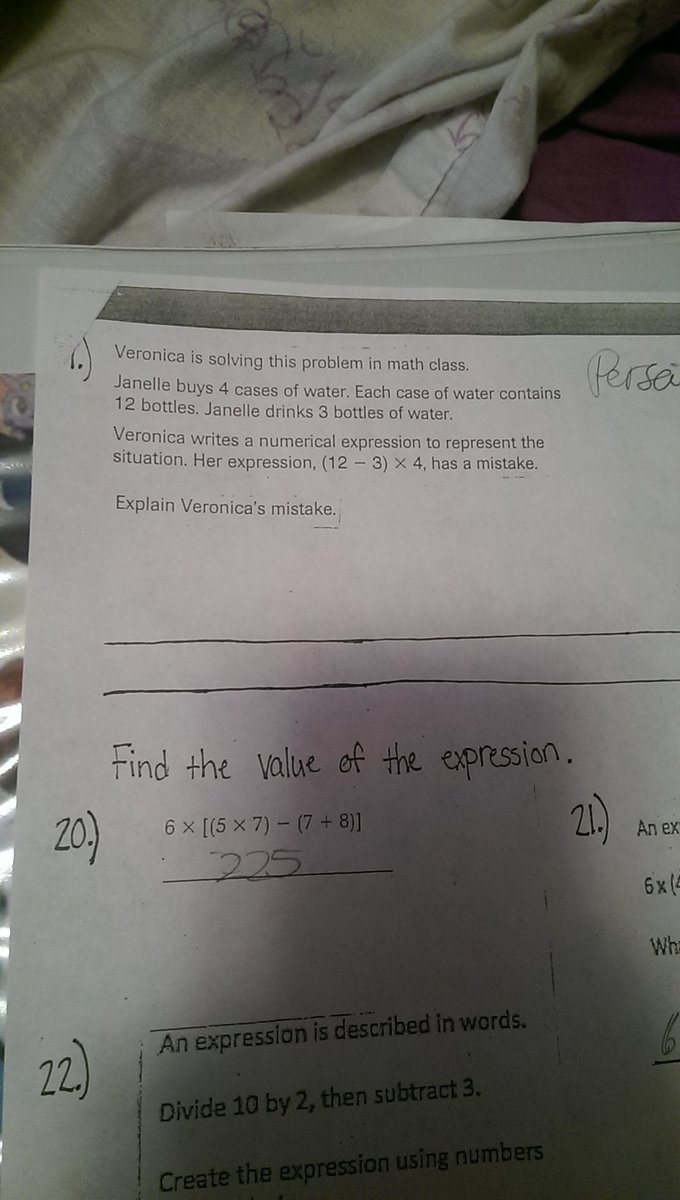 1.)
Veronica is solving this problem in math class.
Janelle buys 4 cases of water. Each case of water contains
12 bottles. Janelle drinks 3 bottles of water.
Veronica writes a numerical expression to represent the
situation. Her expression, (12 − 3) × 4, has a mistake.
Explain Veronica's mistake.
Find the value of the expression.
20.)
6 × [(5 × 7) − (7 + 8)]
225
21.)
An
6 x (
22.)
An expression is described in words.
Divide 10 by 2, then subtract 3.
Create the expression using numbers